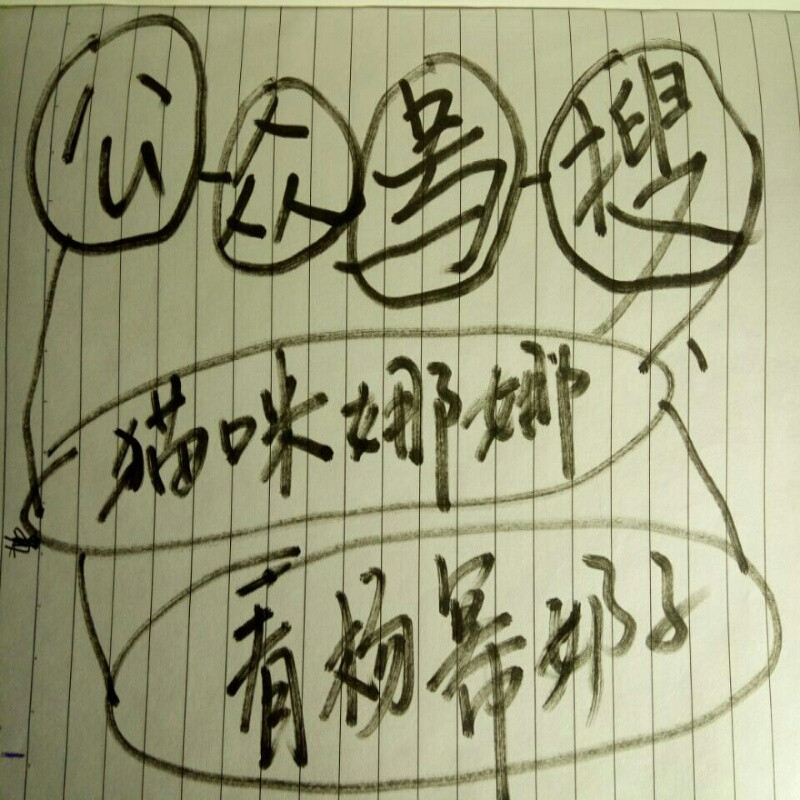 公众号搜
猫咪娜娜
看杨幂奶子